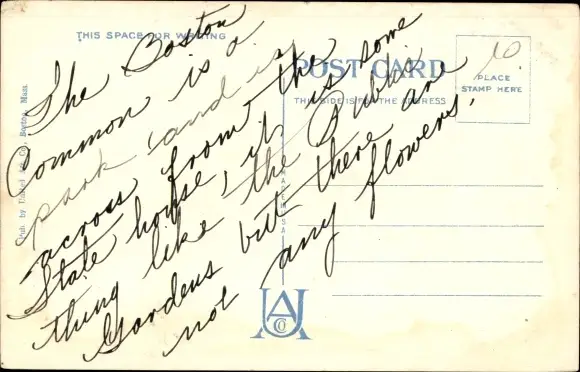 THIS SPACE FOR WRITING
POST CARD
THIS SIDE IS FOR THE ADDRESS
PLACE
STAMP HERE
10
The Boston
Common is a
park and is
across from the
State house, it is some
thing like the Public
Gardens but there are
not any flowers.
Pub. by United Art Co., Boston, Mass.
UA
CO